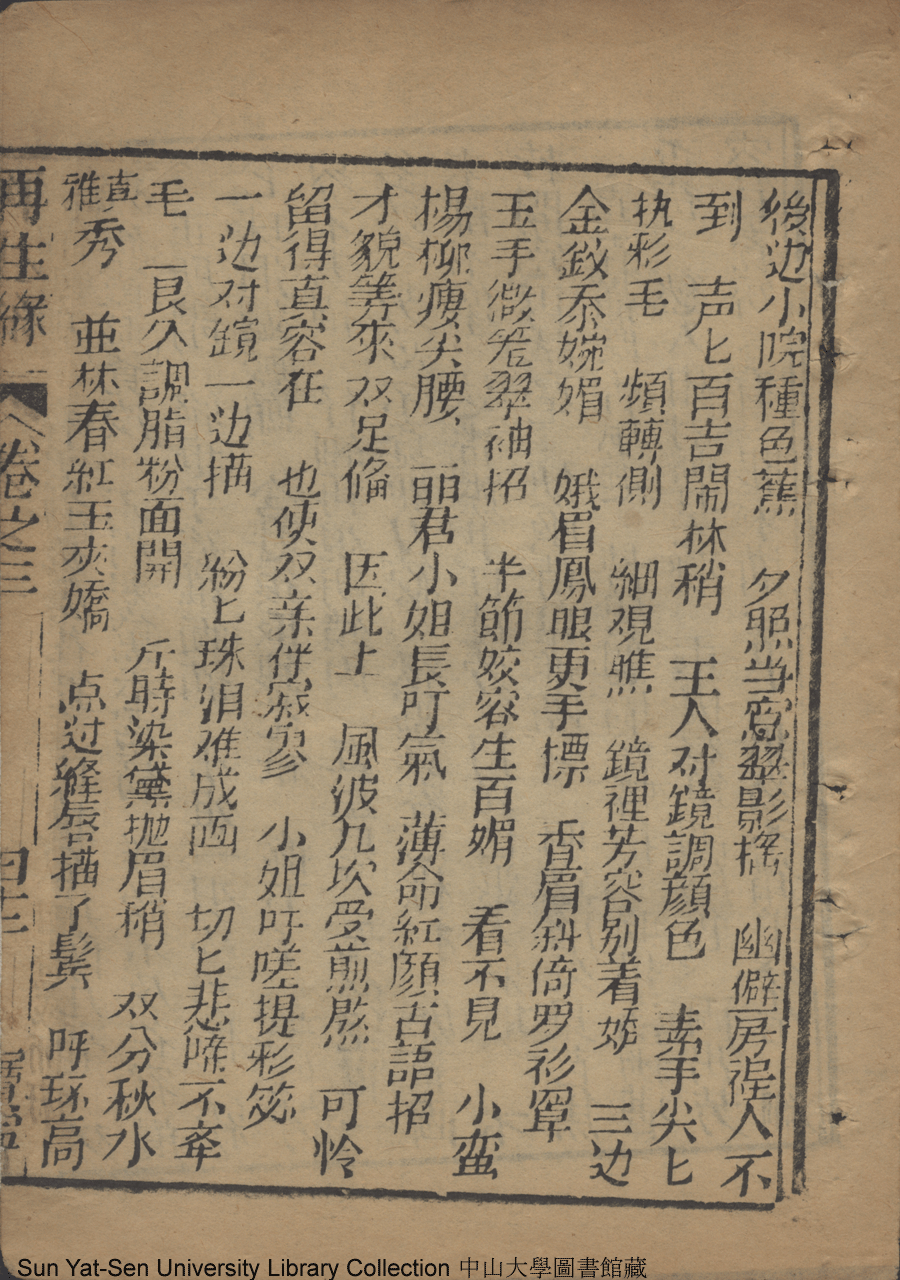 後边小院種色蕉　夕照当窓翠影搖　幽僻房徍人不
到　声匕百吉鬧林稍　王人对鏡調顔色　素手尖匕
执彩毛　頻轉側　細視瞧　鏡裡芳容别着娇　三边
金釵忝婉媚　娥眉鳳眼更手摽　香眉斜倚罗衫罩
玉手微笼翠袖招　半節姣容生百媚　看不見　小蛮
楊柳瘦尖腰　丽君小姐長吁氣　薄命紅顔古語招
才貌等來双足俻　因此上　風波九坎受煎熬　可怜
留得真容在　也使双亲伴寂寥　小姐吁嗟提彩筊
一边对鏡一边描　紛匕珠泪难成画　切匕悲啼不牵
毛　良久調脂粉面開　斤時染黛抛眉稍　双分秋水
真雅秀　並林春紅玉夾嬌　点过絳唇描了鬓　呼环高
再生緣　卷之三　四十三
Sun Yat-Sen University Library Collection 中山大學圖書館藏